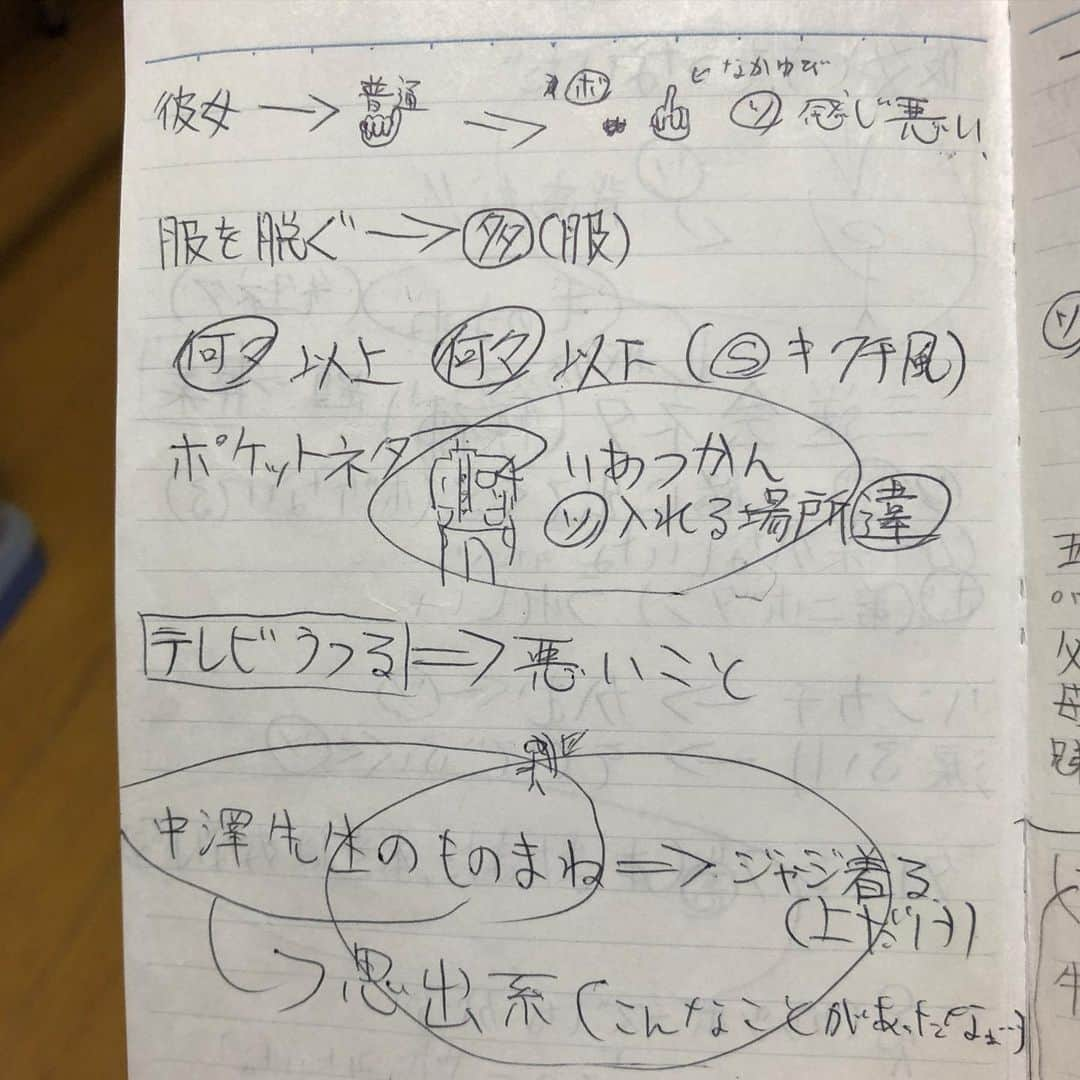 彼女 → 普通 → ボ なかゆび ツ 感じ悪い
服を脱ぐ → 多 (服)
何タ 以上 何タ 以下 (S キワチ風)
ポケットネタ いあつかん
ツ 入れる場所 違
テレビうつる ⇒ 悪いこと
中澤先生のものまね ⇒ ジャージ着る
(上だけ)
思出系 (こんなことがあったでなぁ…)